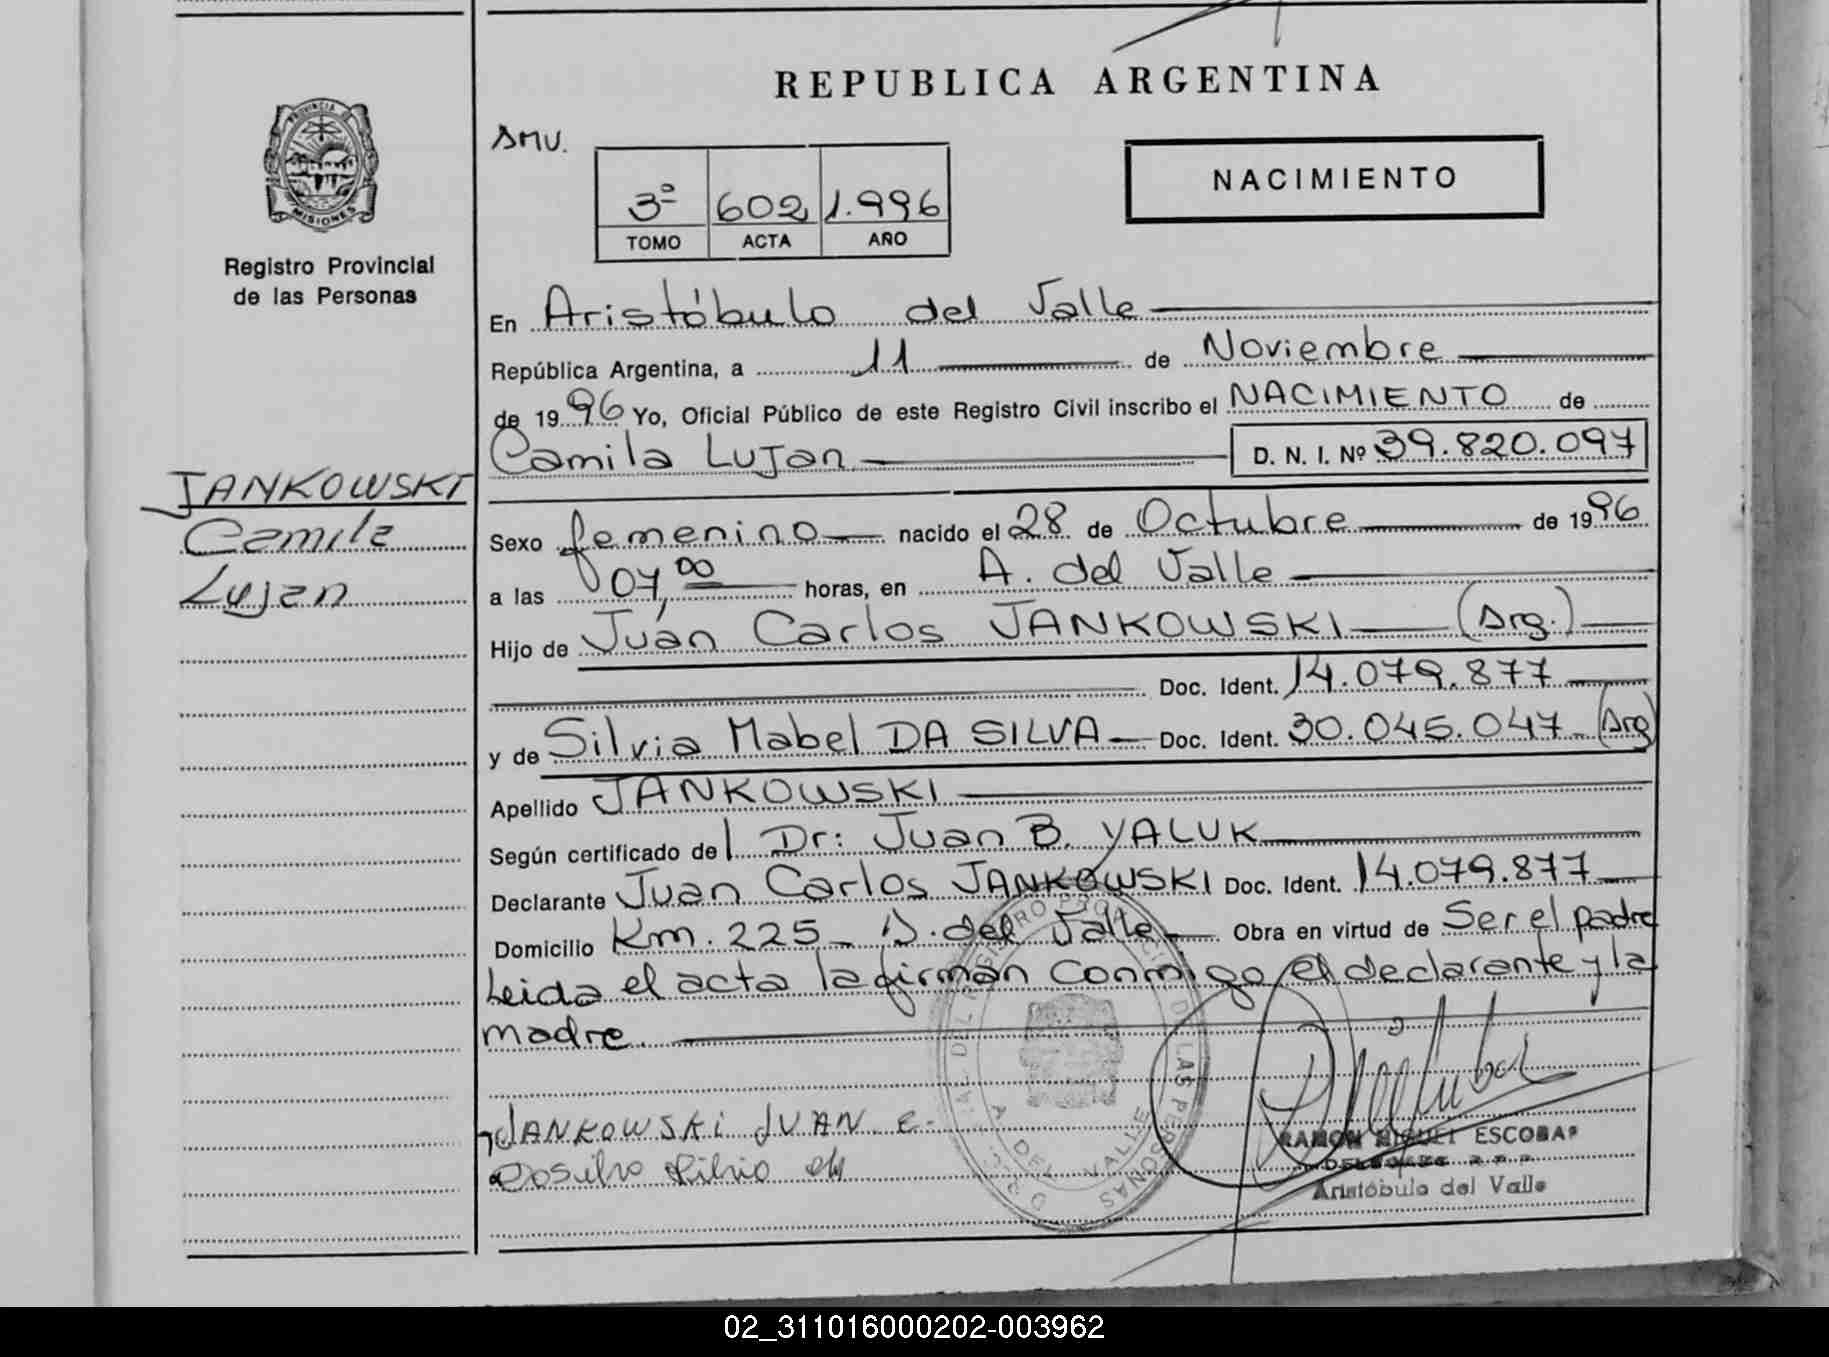 REPUBLICA ARGENTINA
PROVINCIA D MISIONES
Registro Provincial
de las Personas
SMV.
3º 602 1.996
TOMO ACTA AÑO
NACIMIENTO
En Aristóbulo del Valle
República Argentina, a 11 de Noviembre
de 1996 Yo, Oficial Público de este Registro Civil inscribo el NACIMIENTO de
Camila Lujan D. N. I. Nº 39.820.097
JANKOWSKI
Camila
Lujan
Sexo femenino nacido el 28 de Octubre de 1996
a las 07,00 horas, en A. del Valle
Hijo de Juan Carlos JANKOWSKI (Arg.)
Doc. Ident. 14.079.877
y de Silvia Mabel DA SILVA Doc. Ident. 30.045.047 (Arg)
Apellido JANKOWSKI
Según certificado del Dr: Juan B. YALUK
Declarante Juan Carlos JANKOWSKI Doc. Ident. 14.079.877
Domicilio Km. 225 - A. del Valle Obra en virtud de Ser el padre
Leida el acta la firman conmigo el declarante y la
madre.
JANKOWSKI JUAN C.
REGISTRO PROVINCIAL DE LAS PERSONAS
A. DEL VALLE
RAMON MIGUEL ESCOBAR
Aristóbulo del Valle
02_311016000202-003962